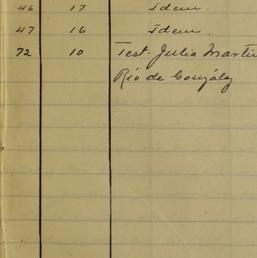 46 17 Idem.
47 16 Idem.
72 10 Test. Julia Martí
Río de Gonzálz